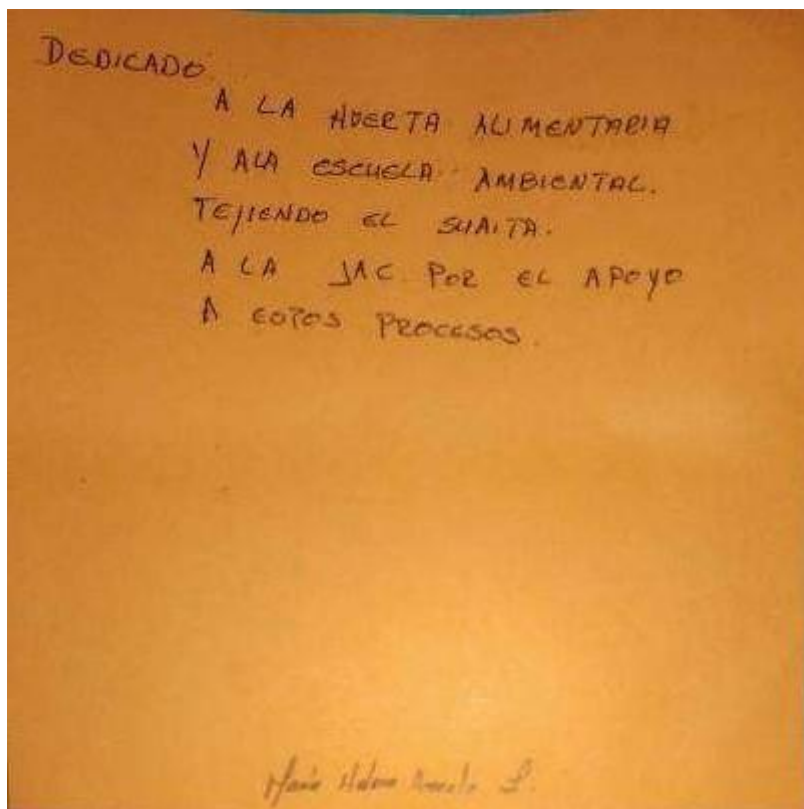 DEDICADO
A LA HUERTA ALIMENTARIA
Y ALA ESCUELA AMBIENTAL.
TEJIENDO EL SUAITA.
A LA JAC. POR EL APOYO
A ESTOS PROCESOS.
María Helena